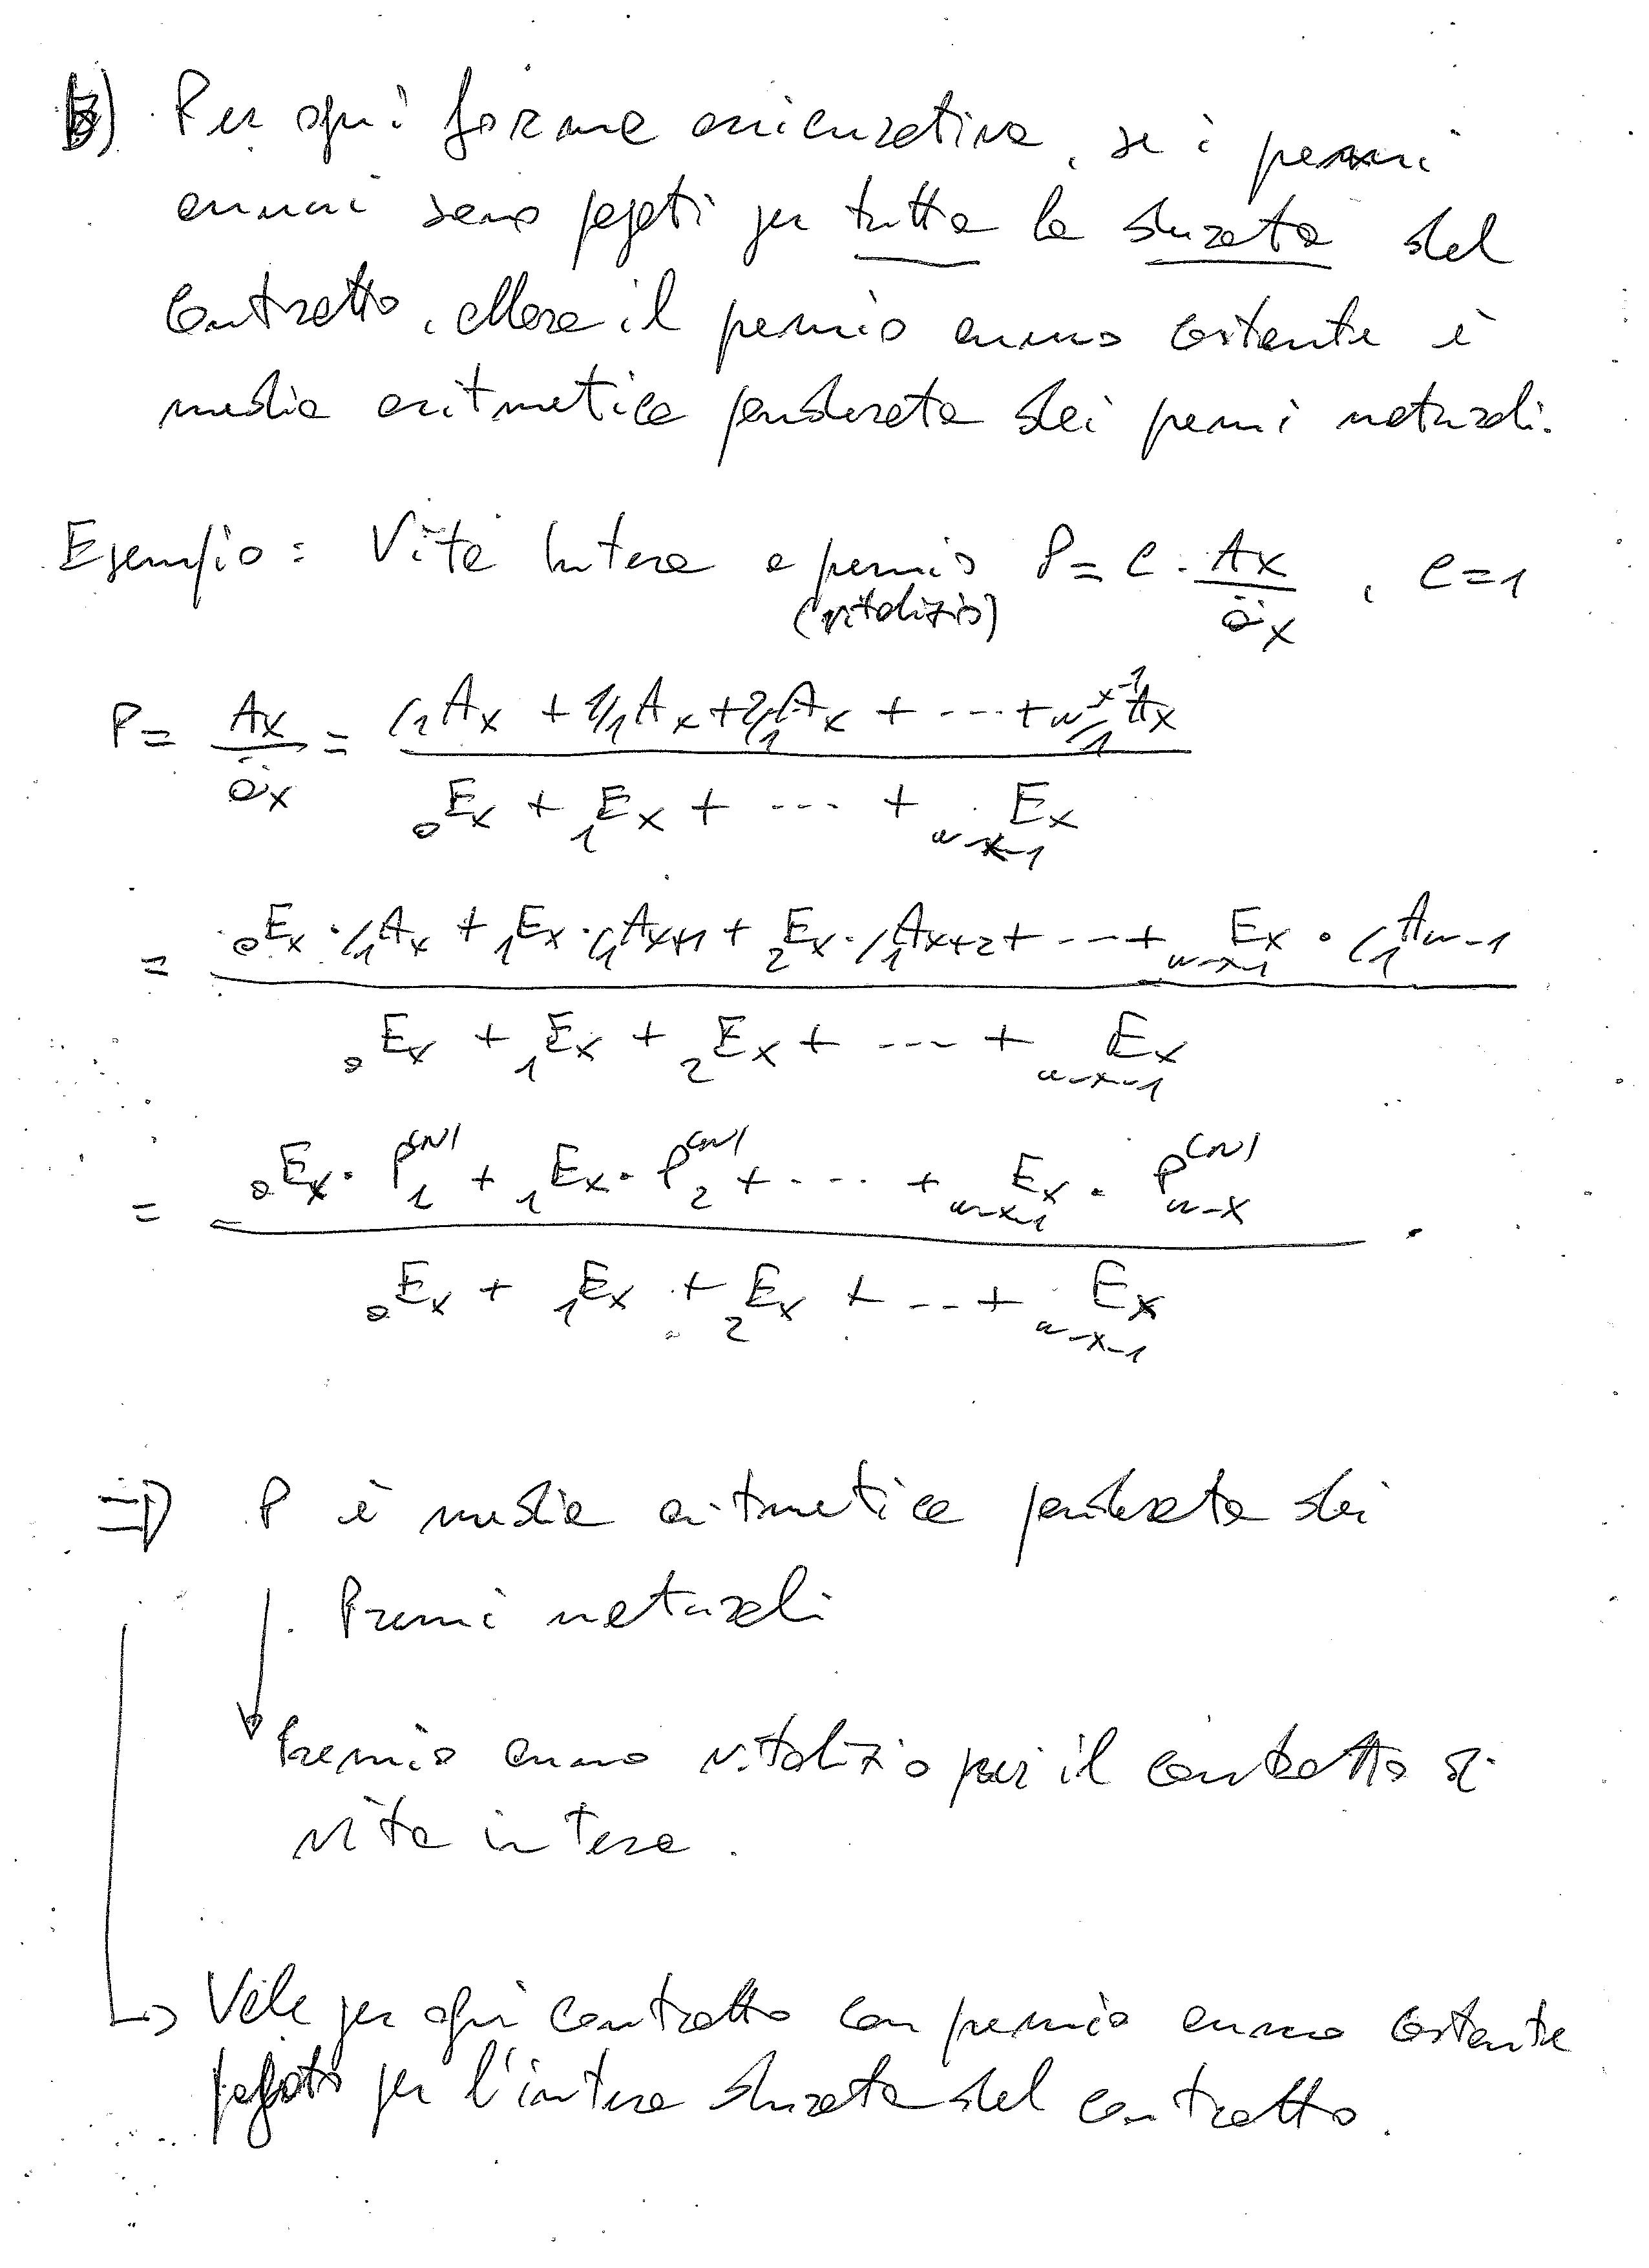 b) Per ogni forma assicurativa, se i premi
annui sono pagati per tutta la durata del
contratto, allora il premio annuo costante è
media aritmetica ponderata dei premi naturali.
Esempio: Vita Intera a premio P = C · Ax / äx , C=1
(vitalizio)
P = Ax / äx = (/1Ax + 1/1Ax + 2/1Ax + ... + ω-x-1/1Ax) / (0Ex + 1Ex + ... + ω-x-1Ex)
= (0Ex · /1Ax + 1Ex · /1Ax+1 + 2Ex · /1Ax+2 + ... + ω-x-1Ex · /1Aω-1) / (0Ex + 1Ex + 2Ex + ... + ω-x-1Ex)
= (0Ex · P1^(N) + 1Ex · P2^(N) + ... + ω-x-1Ex · Pω-x^(N)) / (0Ex + 1Ex + 2Ex + ... + ω-x-1Ex) .
⇒ P è media aritmetica ponderata dei
Premi naturali
↓ Premio annuo vitalizio per il contratto di
vita intera.
↳ Vale per ogni contratto con premio annuo costante
pagato per l'intera durata del contratto.